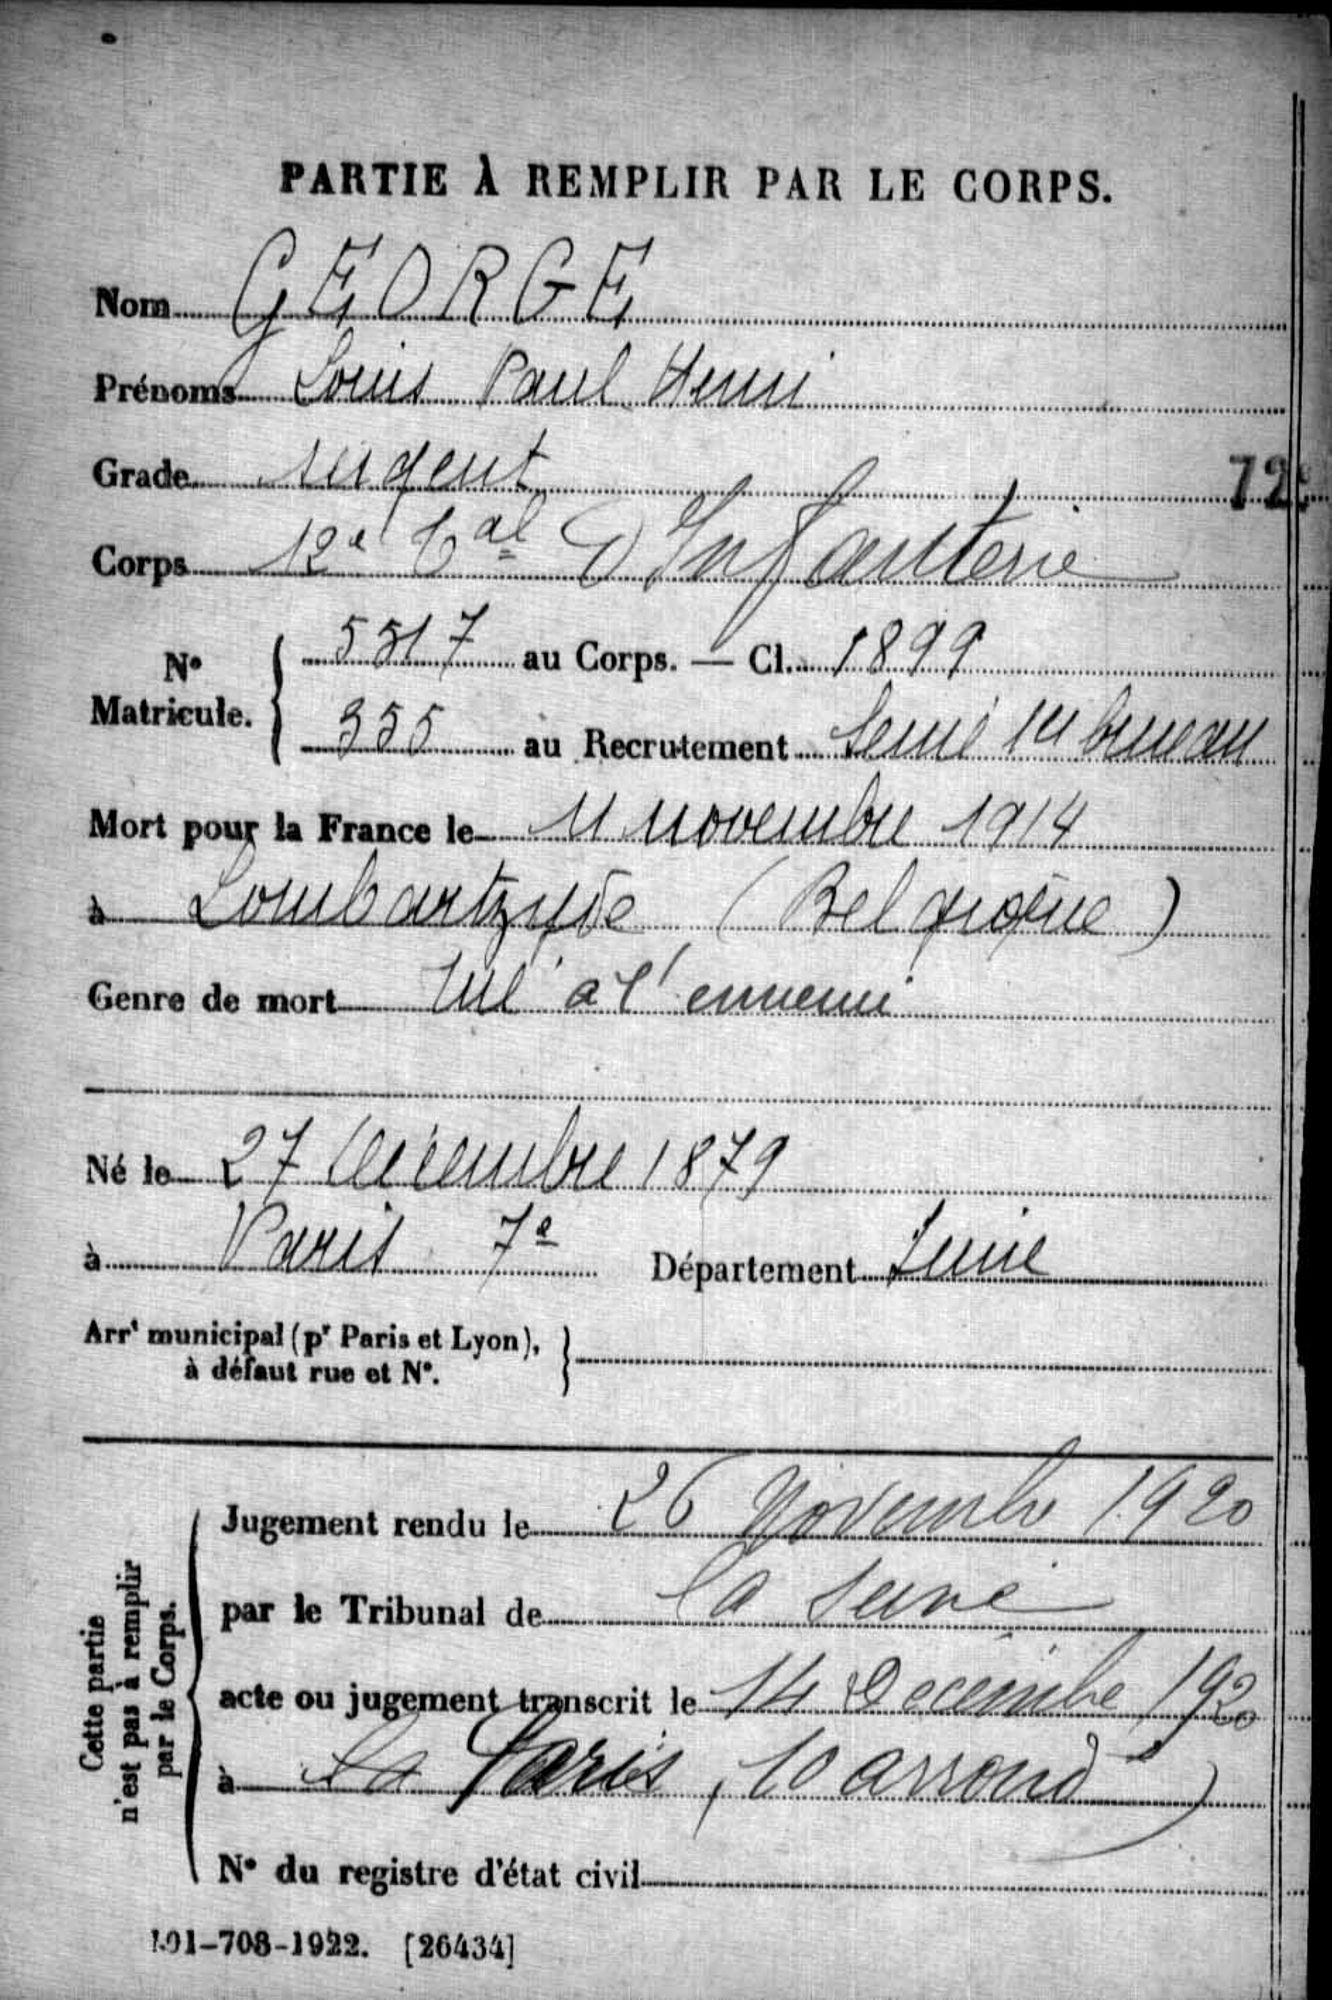 PARTIE À REMPLIR PAR LE CORPS.
Nom GEORGE
Prénoms Louis Paul Henri
Grade sergent
72
Corps 12e Bal D'Infanterie
No Matricule. 5517 au Corps. — Cl. 1899
355 au Recrutement Seine 1er bureau
Mort pour la France le 11 novembre 1914
à Lombartzyde (Belgique)
Genre de mort tué à l'ennemi
Né le 27 décembre 1879
à Paris 7e Département Seine
Arrt municipal (pr Paris et Lyon),
à défaut rue et No.
Cette partie
n'est pas à remplir
par le Corps.
Jugement rendu le 26 Novembre 1920
par le Tribunal de la Seine
acte ou jugement transcrit le 14 Décembre 1920
à Paris, 10 arrond
No du registre d'état civil
101-708-1922. [26434]